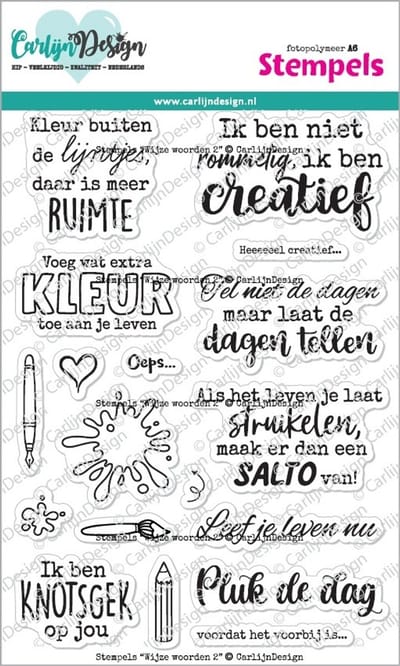 CarlijnDesign
HIP - VEELZIJDIG - KWALITEIT - NEDERLANDS
fotopolymeer A6
Stempels
www.carlijndesign.nl
Kleur buiten
de lijntjes,
daar is meer
RUIMTE
Ik ben niet
rommelig, ik ben
creatief
Stempels "Wijze woorden 2" © CarlijnDesign
Heeeeeel creatief...
Voeg wat extra
KLEUR
toe aan je leven
Stempels "Wijze woorden 2" © CarlijnDesign
Tel niet de dagen
maar laat de
dagen tellen
Oeps...
Als het leven je laat
struikelen,
maak er dan een
SALTO van!
Stempels "Wijze woorden 2" © CarlijnDesign
Leef je leven nu
Stempels "Wijze woorden 2" © CarlijnDesign
Ik ben
KNOTSGEK
op jou
Pluk de dag
voordat het voorbij is...
Stempels "Wijze woorden 2" © CarlijnDesign